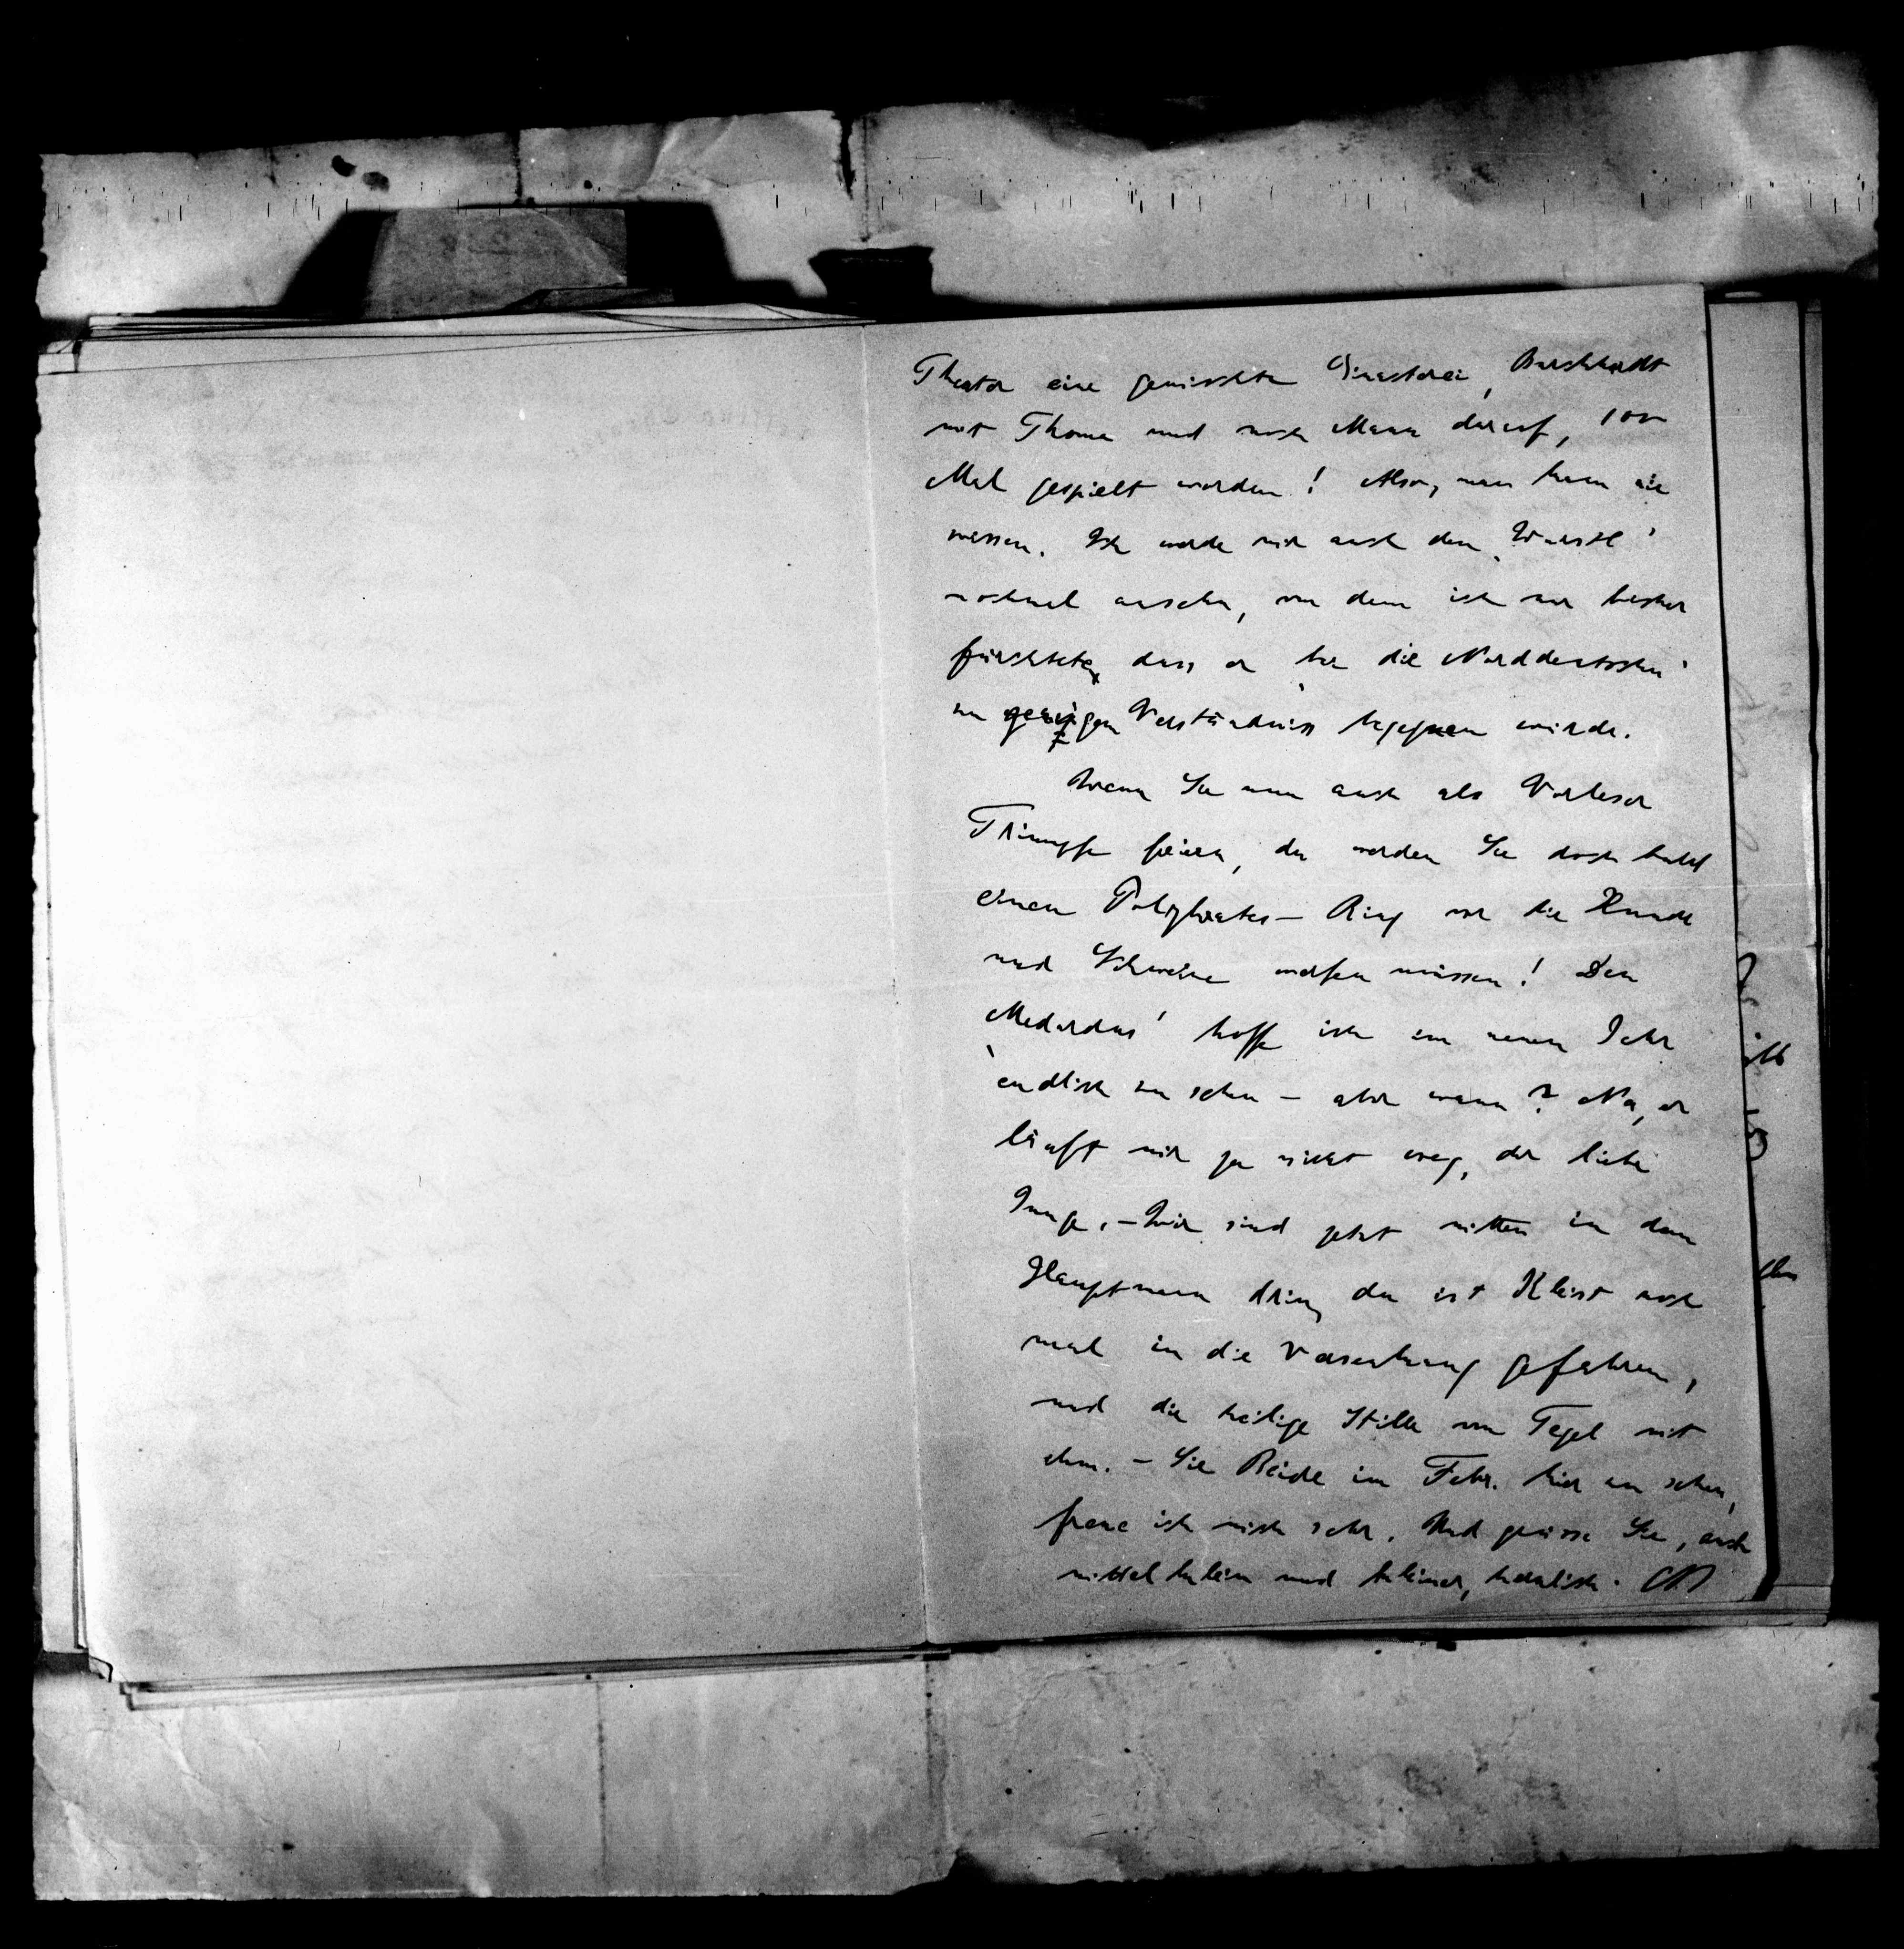 Theater eine gemischte Einakterei, Burckhardt
mit Thoma und noch Mann darauf, 100
Mal gespielt worden! Also, man kann nie
wissen. Ich werde mir auch den ‚Wurstl'
nochmal ansehn, von dem ich nur bisher
fürchtete, dass er bei die ‚Norddeutschen'
zu geringen Verständniss begegnen würde.
Wenn Sie nun auch als Vorleser
Triumpfe feiern, da werden Sie doch bald
einen Polykrates-Ring vor die Hunde
und Schweine werfen müssen! Den
‚Medardus' hoffe ich im neuen Jahr
endlich zu sehen – aber wann? Na, er
läuft mir ja nicht weg, der liebe
Junge. – Wir sind jetzt mitten in dem
Hauptmann drin, da ist Kleist noch
mal in die Versenkung gefahren,
und die heilige Stille von Tegel mit
ihm. – Sie Beide im Febr. hier zu sehen,
freue ich mich sehr. Und grüsse Sie, auch
mittelklein und kleiner, herzlich.